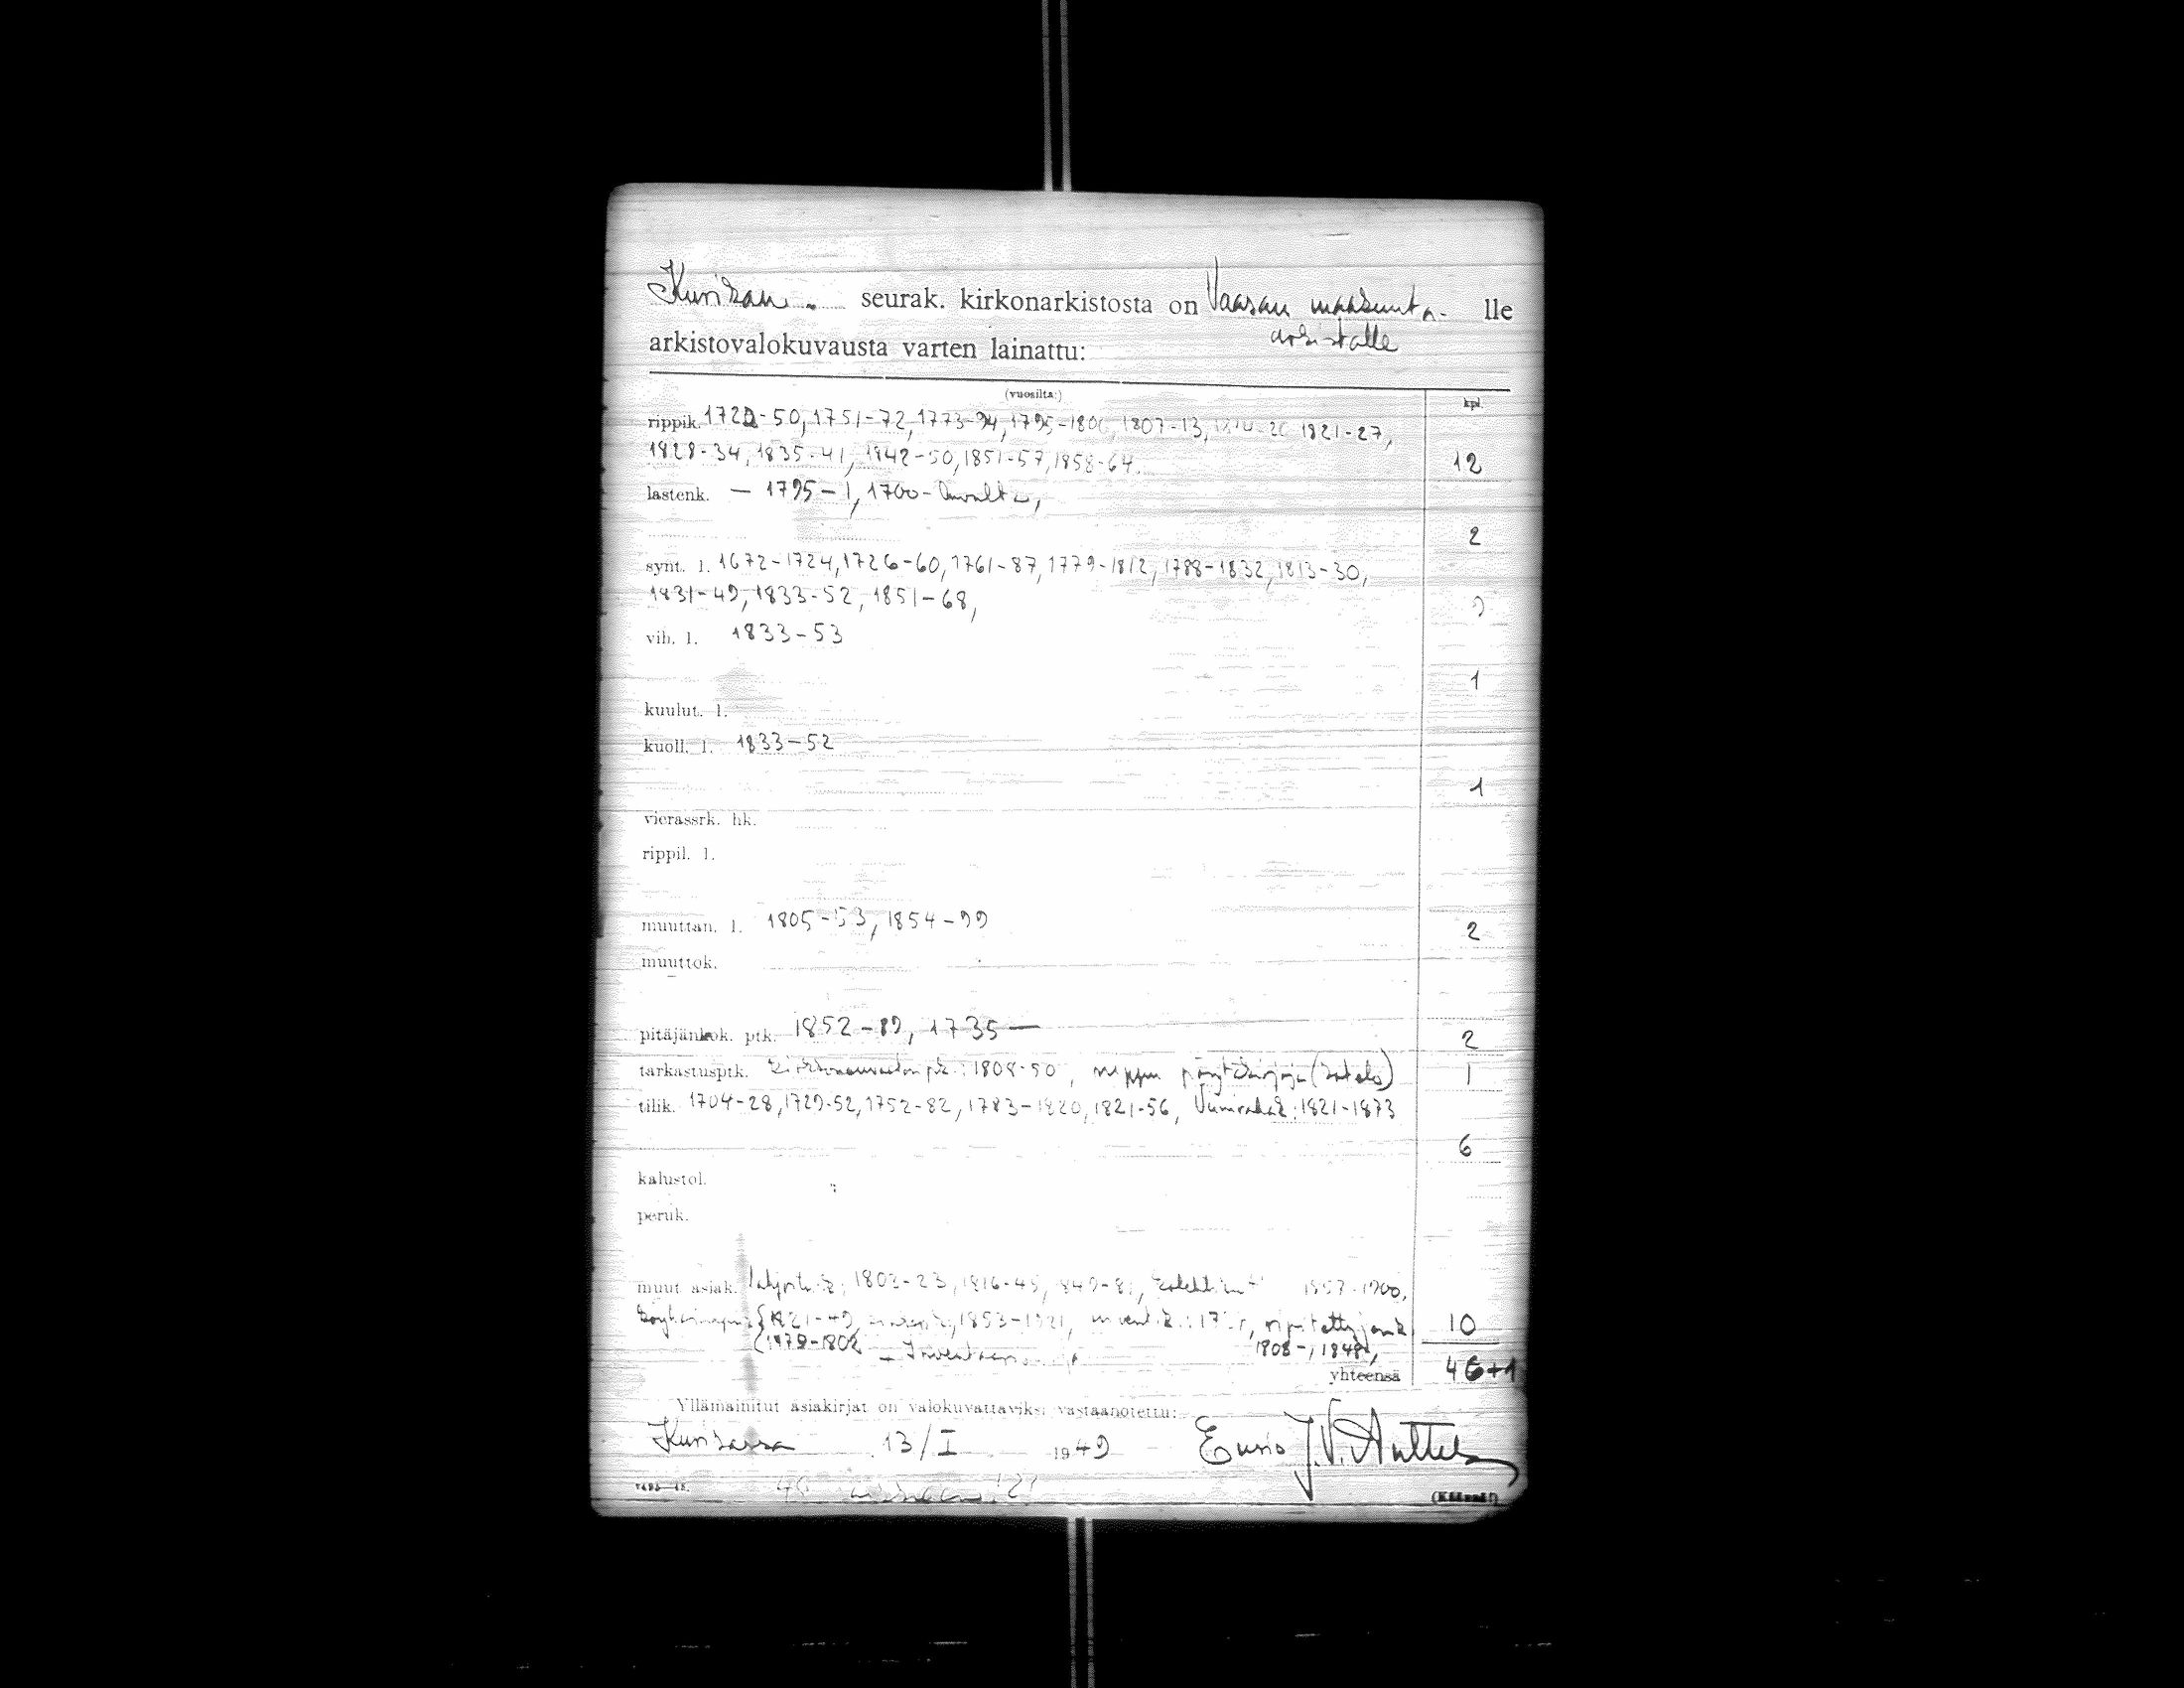 Kurikan seurak. kirkonarkistosta on Vaasan maakunta- lle
arkistovalokuvausta varten lainattu: arkistolle
(vuosilta:) kpl.
rippik. 1722-50, 1751-72, 1773-94, 1795-1806, 1807-13, 1821-27,
1828-34, 1835-41, 1842-50, 1851-57, 1858-64. 12
lastenk. — 1795-1, 1700-luvulta,
2
synt. l. 1672-1724, 1726-60, 1761-87, 1779-1812, 1788-1832, 1813-30,
1831-49, 1833-52, 1851-68, 9
vih. l. 1833-53
1
kuulut. l.
kuoll. l. 1833-52
1
vierassrk. hk.
rippil. l.
muuttan. l. 1805-53, 1854-99 2
muuttok.
pitäjänkok. ptk. 1852-89, 1735— 2
tarkastusptk. 1808-50, nippu pöytäkirjoja (kotelo) 1
tilik. 1704-28, 1729-52, 1752-82, 1783-1820, 1821-56, Viinirahat: 1821-1873
6
kalustol.
peruk.
muut asiak. 1802-23, 1816-45, 1857-1900,
1821-49, 1853-1921, 10
1808-, 1848,
yhteensä 46+1
Yllämainitut asiakirjat on valokuvattaviksi vastaanotettu:
Kurikassa 13/I 1949 Eusio J.V. Anttila
(Käännä!)